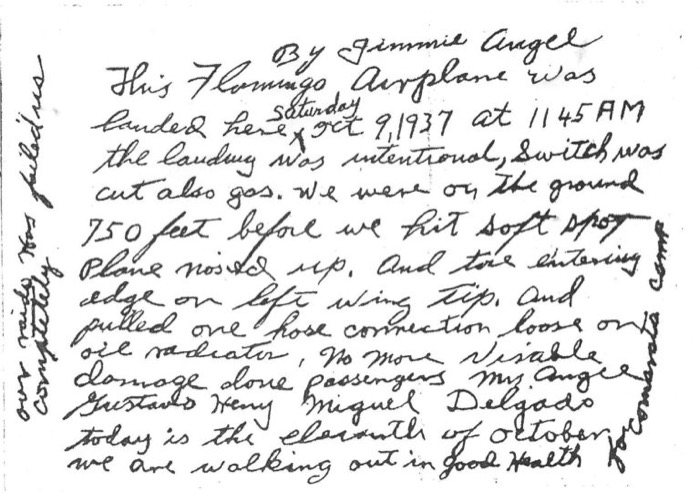 By Jimmie Angel
This Flamingo Airplane was
Saturday
landed here x Oct 9, 1937 at 11 45 AM
the landing was intentional, Switch was
cut also gas. We were on the ground
750 feet before we hit soft spot
Plane nosed up. And tore entering
edge on left wing tip. And
pulled one hose connection loose on
oil radiator, No more visable
damage done passengers Mrs Angel
Gustavo Heny Miguel Delgado
today is the eleventh of October,
we are walking out in good Health
for Camarata camp
our radio has failed us
completely